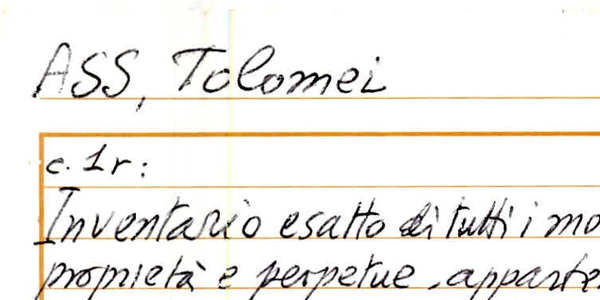 ASS, Tolomei
c. 1r:
Inventario esatto di tutti i mo
proprietà e perpetue, apparte